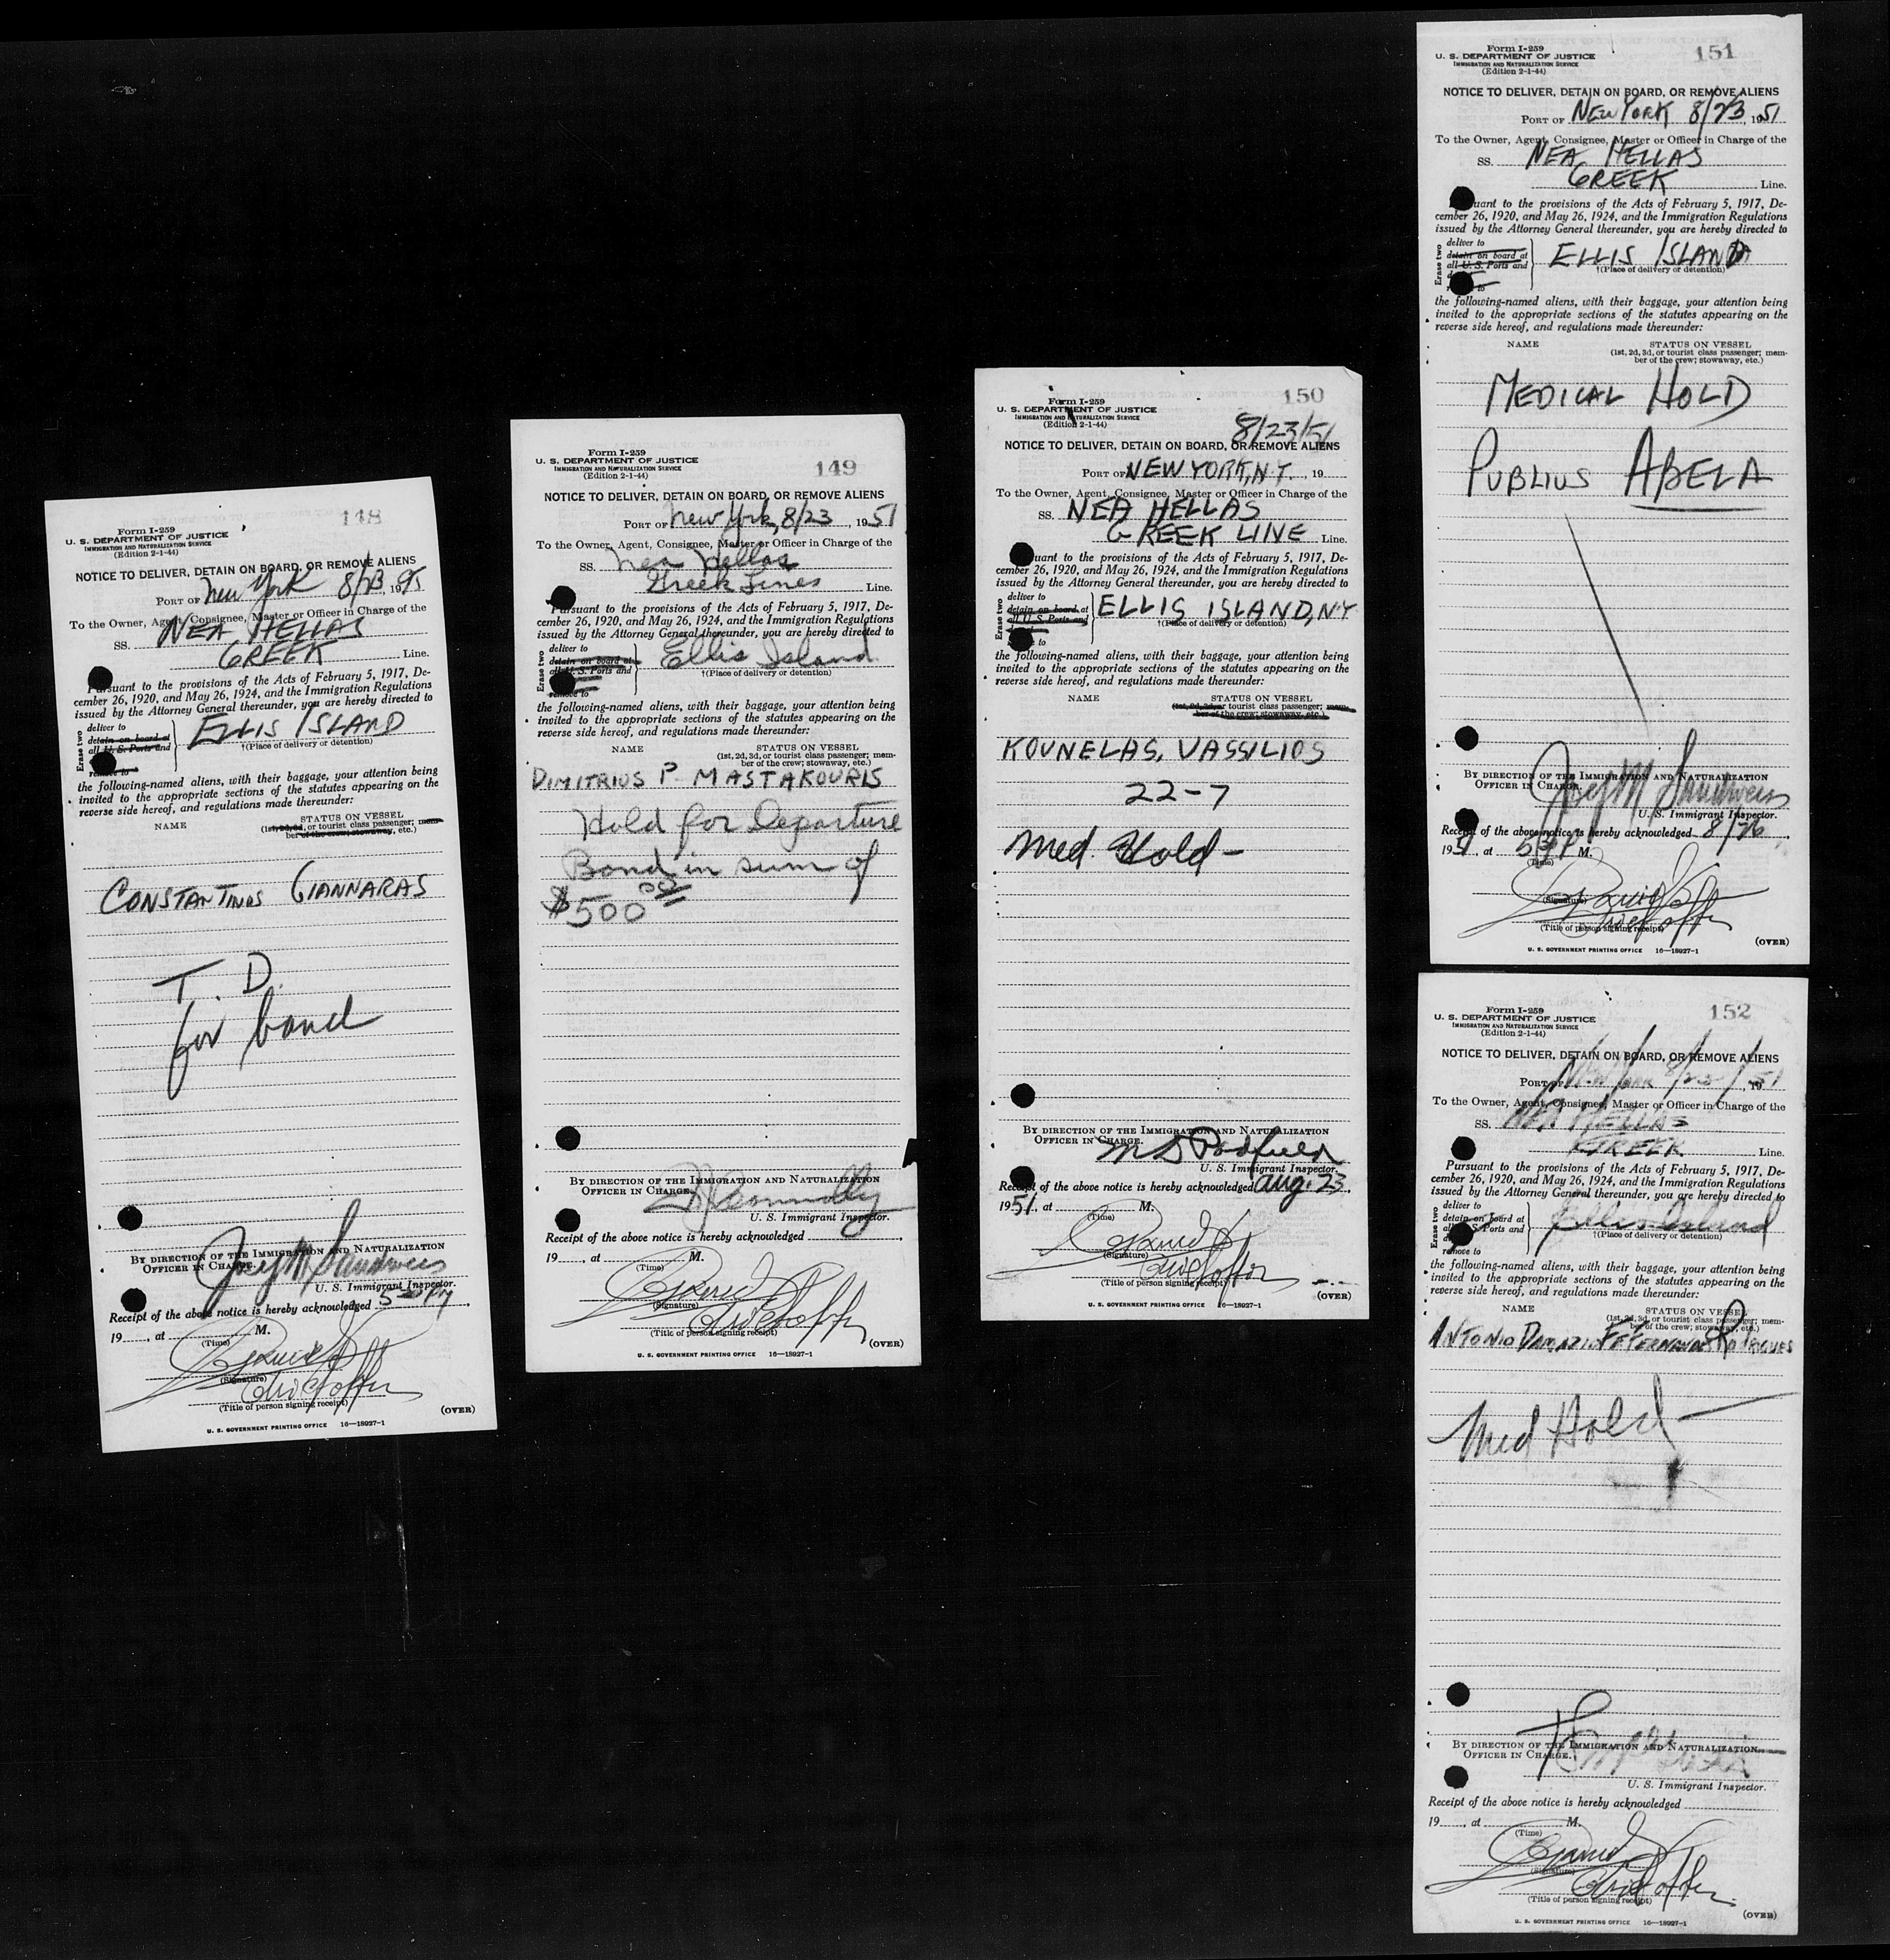 148
Form I-259
U. S. DEPARTMENT OF JUSTICE
IMMIGRATION AND NATURALIZATION SERVICE
(Edition 2-1-44)
NOTICE TO DELIVER, DETAIN ON BOARD, OR REMOVE ALIENS
PORT OF New York 8/23, 19
To the Owner, Agent, Consignee, Master or Officer in Charge of the
SS. NEA HELLAS
GREEK Line.
Pursuant to the provisions of the Acts of February 5, 1917, De-
cember 26, 1920, and May 26, 1924, and the Immigration Regulations
issued by the Attorney General thereunder, you are hereby directed to
Erase two
deliver to
detain on board at
all U. S. Ports and
remove to
ELLIS ISLAND
†(Place of delivery or detention)
the following-named aliens, with their baggage, your attention being
invited to the appropriate sections of the statutes appearing on the
reverse side hereof, and regulations made thereunder:
NAME STATUS ON VESSEL
(1st, 2d, 3d, or tourist class passenger; mem-
ber of the crew; stowaway, etc.)
CONSTANTINOS GIANNARAS
T. D.
for bond
BY DIRECTION OF THE IMMIGRATION AND NATURALIZATION
OFFICER IN CHARGE.
U. S. Immigrant Inspector.
Receipt of the above notice is hereby acknowledged 5 PM
19, at M.
(Time)
(Signature)
(Title of person signing receipt)
(OVER)
U. S. GOVERNMENT PRINTING OFFICE 16—18927-1
149
Form I-259
U. S. DEPARTMENT OF JUSTICE
IMMIGRATION AND NATURALIZATION SERVICE
(Edition 2-1-44)
NOTICE TO DELIVER, DETAIN ON BOARD, OR REMOVE ALIENS
PORT OF New York, 8/23, 1951
To the Owner, Agent, Consignee, Master or Officer in Charge of the
SS. Nea Hellas
Greek Lines Line.
Pursuant to the provisions of the Acts of February 5, 1917, De-
cember 26, 1920, and May 26, 1924, and the Immigration Regulations
issued by the Attorney General thereunder, you are hereby directed to
Erase two
deliver to
detain on board at
all U. S. Ports and
remove to
Ellis Island
†(Place of delivery or detention)
the following-named aliens, with their baggage, your attention being
invited to the appropriate sections of the statutes appearing on the
reverse side hereof, and regulations made thereunder:
NAME STATUS ON VESSEL
(1st, 2d, 3d, or tourist class passenger; mem-
ber of the crew; stowaway, etc.)
DIMITRIUS P MASTAKOURIS
Hold for Departure
Bond in sum of
$500.00
BY DIRECTION OF THE IMMIGRATION AND NATURALIZATION
OFFICER IN CHARGE.
U. S. Immigrant Inspector.
Receipt of the above notice is hereby acknowledged
19, at M.
(Time)
(Signature)
(Title of person signing receipt)
(OVER)
U. S. GOVERNMENT PRINTING OFFICE 16—18927-1
150
Form I-259
U. S. DEPARTMENT OF JUSTICE
IMMIGRATION AND NATURALIZATION SERVICE
(Edition 2-1-44)
8/23/51
NOTICE TO DELIVER, DETAIN ON BOARD, OR REMOVE ALIENS
PORT OF NEW YORK, N.Y., 19
To the Owner, Agent, Consignee, Master or Officer in Charge of the
SS. NEA HELLAS
GREEK LINE Line.
Pursuant to the provisions of the Acts of February 5, 1917, De-
cember 26, 1920, and May 26, 1924, and the Immigration Regulations
issued by the Attorney General thereunder, you are hereby directed to
Erase two
deliver to
detain on board at
all U. S. Ports and
to
ELLIS ISLAND, N.Y
†(Place of delivery or detention)
the following-named aliens, with their baggage, your attention being
invited to the appropriate sections of the statutes appearing on the
reverse side hereof, and regulations made thereunder:
NAME STATUS ON VESSEL
(1st, 2d, 3d, or tourist class passenger; mem-
ber of the crew; stowaway, etc.)
KOUNELAS, VASSILIOS
22-7
Med. Hold-
BY DIRECTION OF THE IMMIGRATION AND NATURALIZATION
OFFICER IN CHARGE.
M D Padfield
U. S. Immigrant Inspector.
Receipt of the above notice is hereby acknowledged Aug. 23,
1951, at M.
(Time)
(Signature)
(Title of person signing receipt)
(OVER)
U. S. GOVERNMENT PRINTING OFFICE 16—18927-1
151
Form I-259
U. S. DEPARTMENT OF JUSTICE
IMMIGRATION AND NATURALIZATION SERVICE
(Edition 2-1-44)
NOTICE TO DELIVER, DETAIN ON BOARD, OR REMOVE ALIENS
PORT OF NEW YORK 8/23, 1951
To the Owner, Agent, Consignee, Master or Officer in Charge of the
SS. NEA HELLAS
GREEK Line.
Pursuant to the provisions of the Acts of February 5, 1917, De-
cember 26, 1920, and May 26, 1924, and the Immigration Regulations
issued by the Attorney General thereunder, you are hereby directed to
Erase two
deliver to
detain on board at
all U. S. Ports and
to
ELLIS ISLAND
†(Place of delivery or detention)
the following-named aliens, with their baggage, your attention being
invited to the appropriate sections of the statutes appearing on the
reverse side hereof, and regulations made thereunder:
NAME STATUS ON VESSEL
(1st, 2d, 3d, or tourist class passenger; mem-
ber of the crew; stowaway, etc.)
MEDICAL HOLD
PUBLIUS ABELA
BY DIRECTION OF THE IMMIGRATION AND NATURALIZATION
OFFICER IN CHARGE.
U. S. Immigrant Inspector.
Receipt of the above notice is hereby acknowledged
1951, at M.
(Time)
(Signature)
(Title of person signing receipt)
(OVER)
U. S. GOVERNMENT PRINTING OFFICE 16—18927-1
152
Form I-259
U. S. DEPARTMENT OF JUSTICE
IMMIGRATION AND NATURALIZATION SERVICE
(Edition 2-1-44)
NOTICE TO DELIVER, DETAIN ON BOARD, OR REMOVE ALIENS
PORT OF New York 8/23/, 1951
To the Owner, Agent, Consignee, Master or Officer in Charge of the
SS. NEA HELLAS
GREEK Line.
Pursuant to the provisions of the Acts of February 5, 1917, De-
cember 26, 1920, and May 26, 1924, and the Immigration Regulations
issued by the Attorney General thereunder, you are hereby directed to
Erase two
deliver to
detain on board at
all U. S. Ports and
remove to
Ellis Island
†(Place of delivery or detention)
the following-named aliens, with their baggage, your attention being
invited to the appropriate sections of the statutes appearing on the
reverse side hereof, and regulations made thereunder:
NAME STATUS ON VESSEL
(1st, 2d, 3d, or tourist class passenger; mem-
ber of the crew; stowaway, etc.)
ANTONIO RODRIGUES
Med Hold
BY DIRECTION OF THE IMMIGRATION AND NATURALIZATION
OFFICER IN CHARGE.
U. S. Immigrant Inspector.
Receipt of the above notice is hereby acknowledged
19, at M.
(Time)
(Signature)
(Title of person signing receipt)
(OVER)
U. S. GOVERNMENT PRINTING OFFICE 16—18927-1